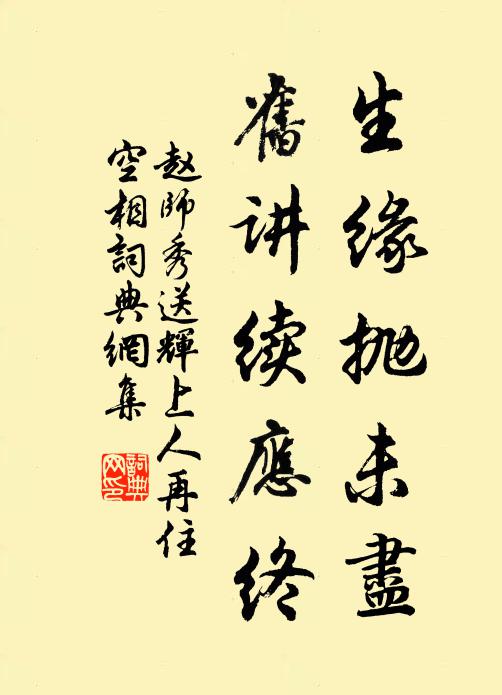 生缘抛未盡
舊讲续應终
赵師秀送輝上人再住
空相詞典網集
詞典
网印